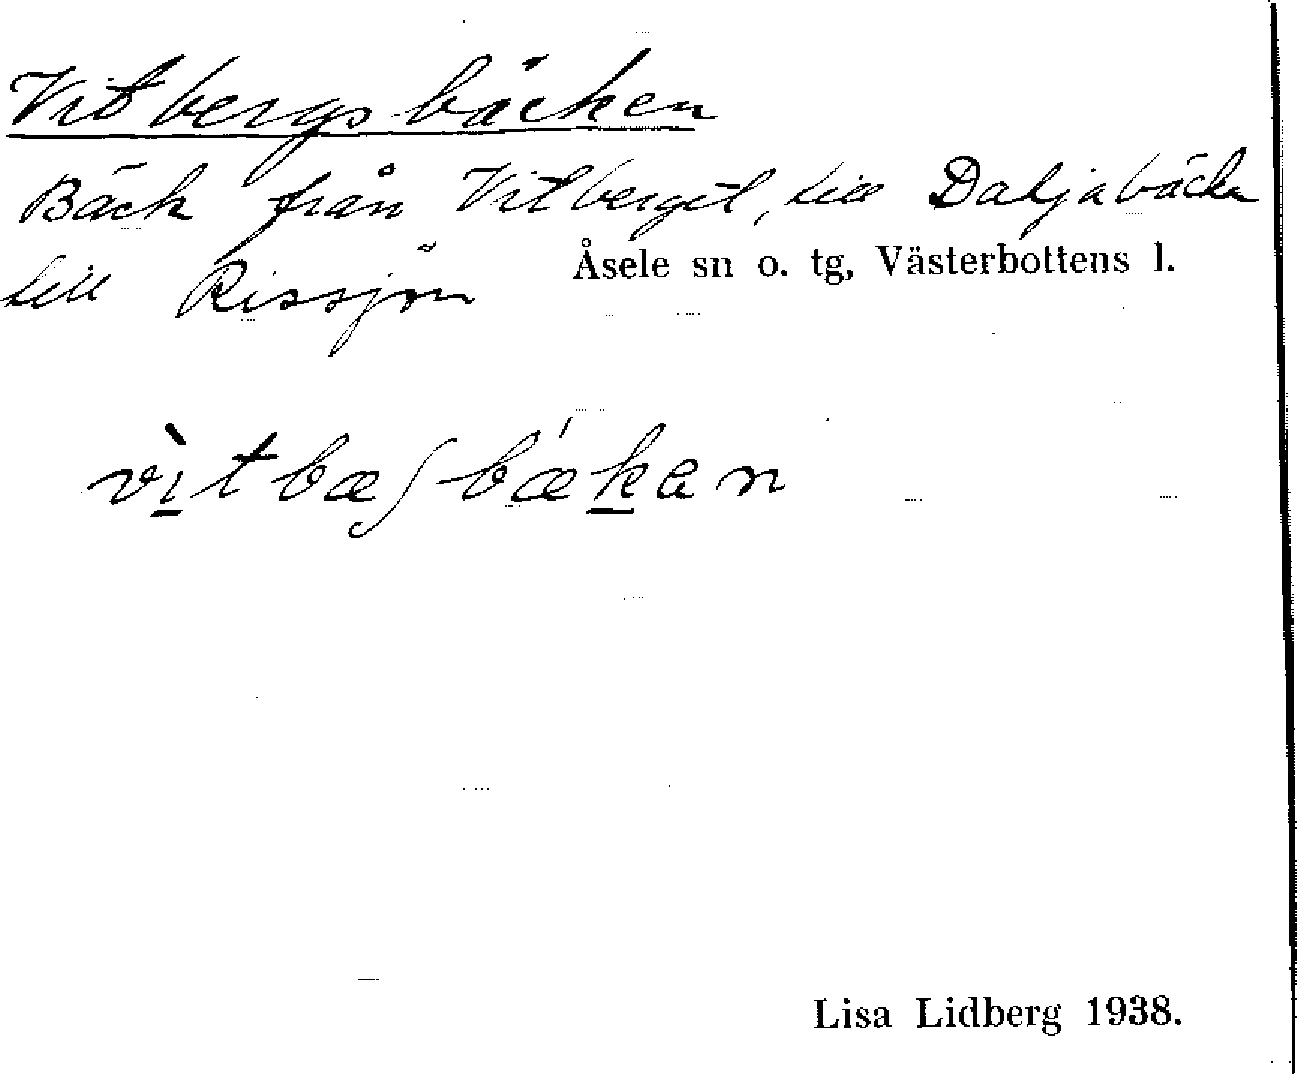 Vitbergsbäcken
Bäck från Vitberget, till Daljabäcken
till Rissjön
Åsele sn o. tg, Västerbottens l.
vìtbæʃbækan
Lisa Lidberg 1938.